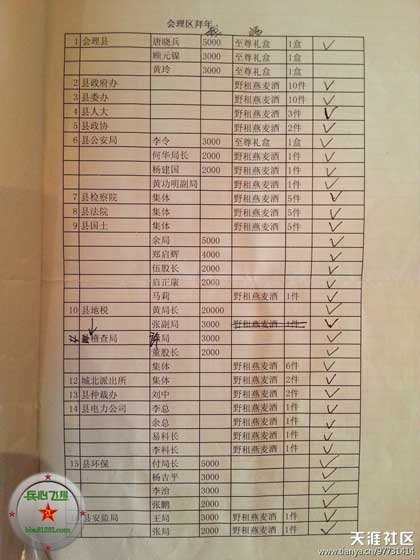 会理区拜年
酒
1 会理县 唐晓兵 5000 至尊礼盒 1盒
顾元猓 3000 至尊礼盒 1盒
黄玲 3000 至尊礼盒 1盒
2 县政府办 野租燕麦酒 10件
3 县委办 野租燕麦酒 10件
4 县人大 野租燕麦酒 3件
5 县政协 野租燕麦酒 2件
6 县公安局 李令 3000 至尊礼盒 1盒
何华局长 2000 野租燕麦酒 1件
杨建国 2000 野租燕麦酒 1件
黄功明副局 野租燕麦酒 1件
7 县检察院 集体 野租燕麦酒 5件
8 县法院 集体 野租燕麦酒 5件
9 县国土 集体 野租燕麦酒 5件
余局 5000
郑启辉 4000
伍股长 2000
启正康 2000
马莉 野租燕麦酒 1件
10 县地税 黄局长 20000
张副局 3000 野租燕麦酒 1件
稽查局 许局 3000
董股长 2000
集体 野租燕麦酒 6件
12 城北派出所 集体 野租燕麦酒 2件
13 县仲裁办 刘中 2000 野租燕麦酒 2件
14 县电力公司 李总 2000 野租燕麦酒 1件
余总 2000 野租燕麦酒 1件
易科长 2000 野租燕麦酒 1件
李科长 2000 野租燕麦酒 1件
15 县环保 付局长 5000
杨吉平 3000
李治 3000
张鹏 2000
县安监局 王局 3000 野租燕麦酒 1件
张局 2000 野租燕麦酒 1件
民心飞扬
天涯社区
www.tianya.cn/97731414